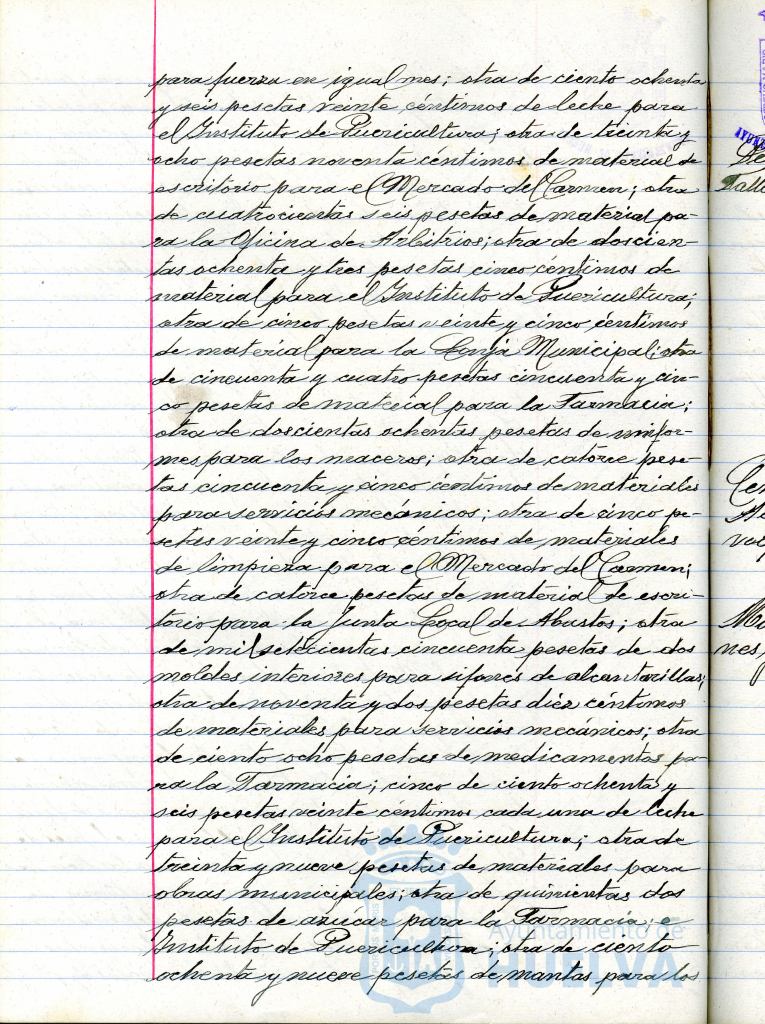 para fuerza en igual mes; otra de ciento ochenta
y seis pesetas veinte céntimos de leche para
el Instituto de Puericultura; otra de treinta y
ocho pesetas noventa centimos de material de
escritorio para el Mercado del Carmen; otra
de cuatrocientas seis pesetas de material pa-
ra la Oficina de Arbitrios; otra de doscien-
tas ochenta y tres pesetas cinco céntimos de
material para el Instituto de Puericultura;
otra de cinco pesetas veinte y cinco céntimos
de material para la Lonja Municipal; otra
de cincuenta y cuatro pesetas cincuenta y cin-
co pesetas de material para la Farmacia;
otra de doscientas ochentas pesetas de unifor-
mes para los maceros; otra de catorce pese-
tas cincuenta y cinco céntimos de materiales
para servicios mecánicos; otra de cinco pe-
setas veinte y cinco céntimos de materiales
de limpieza para el Mercado del Carmen;
otra de catorce pesetas de material de escri-
torio para la Junta Local de Abastos; otra
de mil setecientas cincuenta pesetas de dos
moldes interiores para sifones de alcantarillas;
otra de noventa y dos pesetas diez céntimos
de materiales para servicios mecánicos; otra
de ciento ocho pesetas de medicamentos pa-
ra la Farmacia; cinco de ciento ochenta y
seis pesetas veinte céntimos cada una de leche
para el Instituto de Puericultura; otra de
treinta y nueve pesetas de materiales para
obras municipales; otra de quinientas dos
pesetas de azúcar para la Farmacia e
Instituto de Puericultura; otra de ciento
ochenta y nueve pesetas de mantas para los
Ayuntamiento de
HUELVA